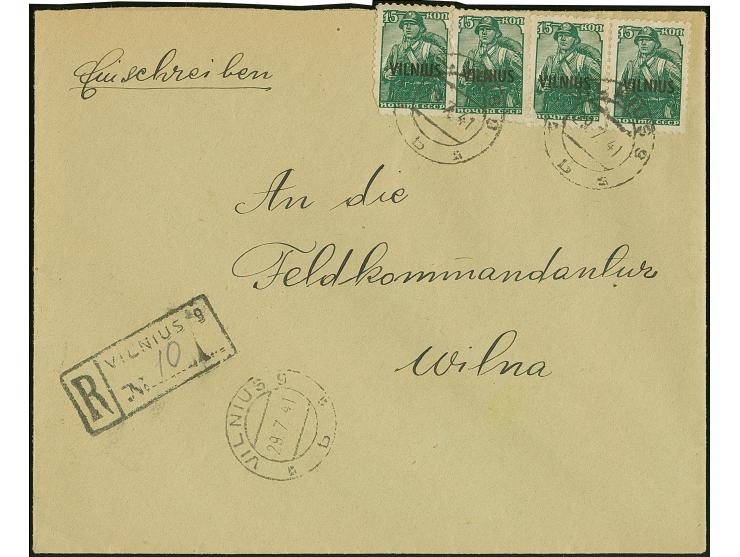 15 КОП 15 КОП 15 КОП 15 КОП
VILNIUS VILNIUS VILNIUS VILNIUS
ПОЧТА СССР ПОЧТА СССР ПОЧТА СССР ПОЧТА СССР
Einschreiben
29.7.41
b
An die
Feldkommandantur
Wilna
R
VILNIUS 9
№ 10
VILNIUS 9
29.7.41
b